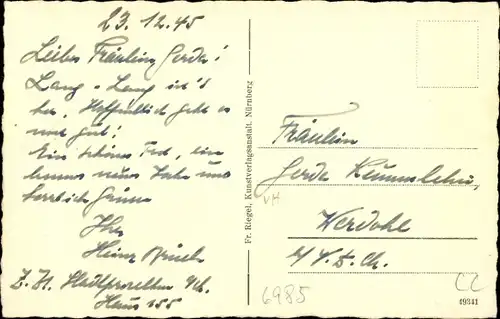 23.12.45
Liebes Fräulein Gerda!
Lang - Lang ist's
her, Hoffentlich geht es
noch gut!
Ein schönes Fest, ein
neues Jahr und
herzlich Grüsse
Ihr
Heinz
Z. Zt. Stadtprozelten
Haus 155
Fr. Riegel, Kunstverlagsanstalt, Nürnberg
Fräulein
Gerda
Werdohl
6985
CC
49341